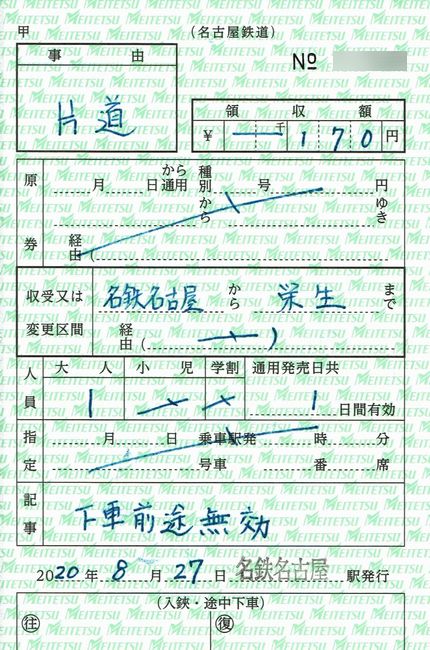 甲 (名古屋鉄道)
事由 №
片道
領収額
¥ 千170円
原券 月 日から通用 種別 号 円
から ゆき
経由(
収受又は変更区間 名鉄名古屋から 栄生まで
経由( )
人員 大人 小児 学割 通用発売日共
1 1日間有効
指定 月 日 乗車駅発 時 分
号車 番 席
記事 下車前途無効
2020年8月27日 名鉄名古屋 駅発行
(入鋏・途中下車)
往 復